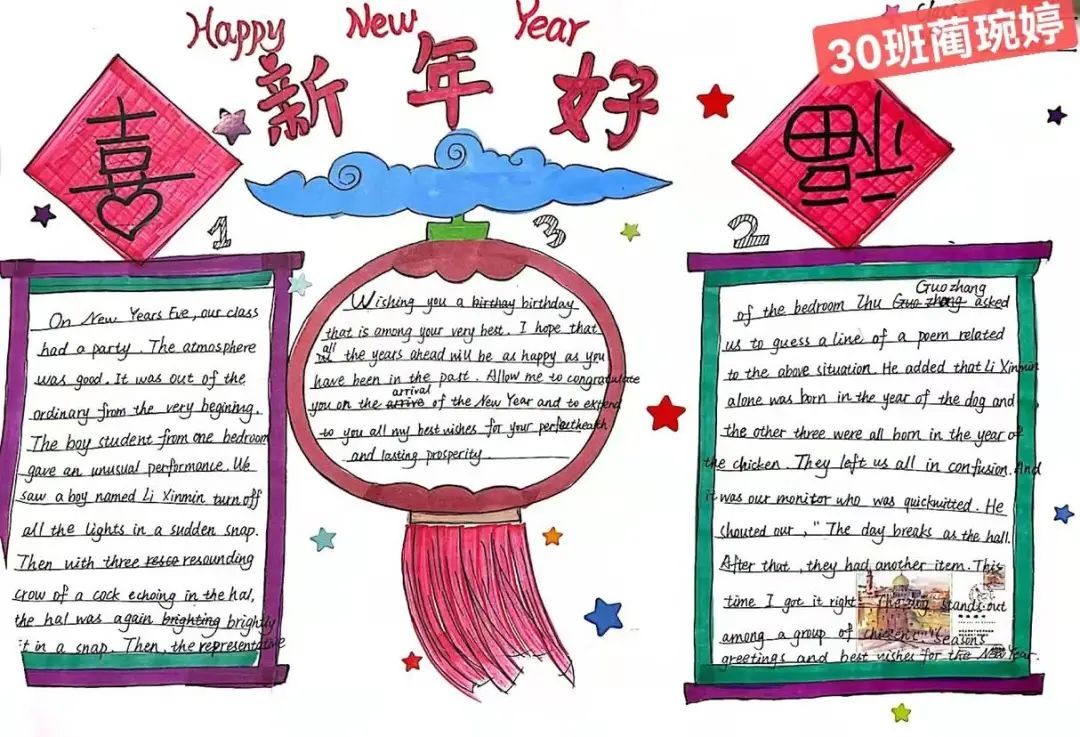 Happy New Year
Class
30班蔺琬婷
新年好
喜
福
1
On New Years Eve, our class
had a party. The atmosphere
was good. It was out of the
ordinary from the very begining.
The boy student from one bedroom
gave an unusual performance. We
saw a boy named Li Xinmin turn off
all the lights in a sudden snap.
Then with three resco resounding
crow of a cock echoing in the hal,
the hal was again brighting brightly
it in a snap. Then, the representative
3
Wishing you a birthay birthday
that is among your very best. I hope that
all the years ahead will be as happy as you
have been in the past. Allow me to congratulate
you on the arrive arrival of the New Year and to extend
to you all my best wishes for your perfect health
and lasting prosperity.
2
Guozhang
of the bedroom Zhu Guo zhang asked
us to guess a line of a poem related
to the above situation. He added that Li Xinmin
alone was born in the year of the dog and
the other three were all born in the year of
the chicken. They left us all in confusion. And
it was our monitor who was quickwitted. He
shouted our, "The day breaks as the hall.
After that, they had another item. This
time I got it right. The dog stands out
among a group of chickens." Seasons
greetings and best wishes for the New Year.